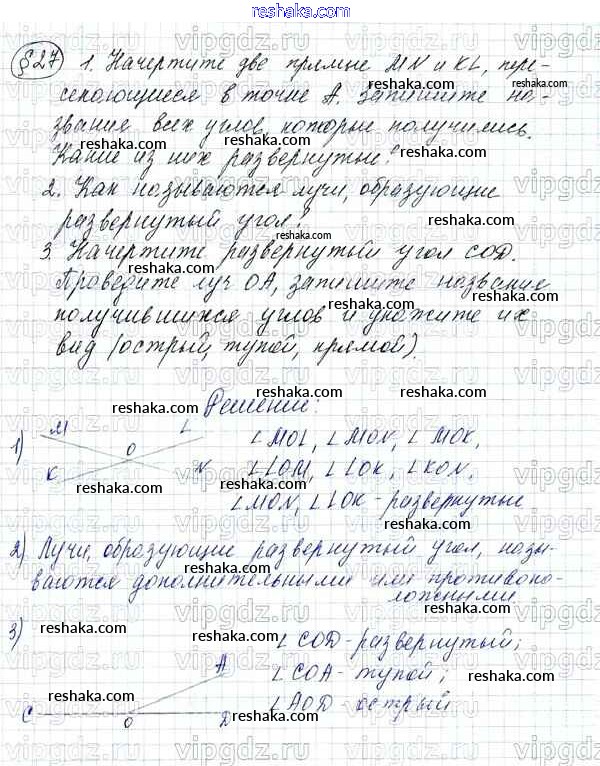 reshaka.com
§27 1. Начертите две прямые MN и KL, пере-
секающиеся в точке A. Запишите на-
звания всех углов, которые получились.
Какие из них развернутые?
2. Как называются лучи, образующие
развернутый угол?
3. Начертите развернутый угол COD.
Проведите луч OA, запишите названия
получившихся углов и укажите их
вид (острый, тупой, прямой).
Решение:
1) M L O K N
∠MOL, ∠MON, ∠MOK,
∠LOM, ∠LOK, ∠KON.
∠MON, ∠LOK - развернутые
2) Лучи, образующие развернутый угол, назы-
ваются дополнительными или противопо-
ложными.
3) A C O D
∠COD - развернутый;
∠COA - тупой;
∠AOD - острый